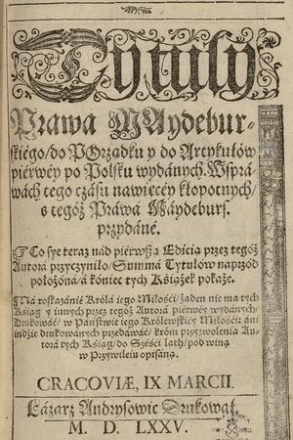 Tytuly
Prawa MAydebur-
skiego/do POrządku y do Artykułów
pierwéy po Polsku wydanych. Wspra-
wách tego czásu nawiecéy kłopotnych/
s tegóż Práwa Máydeburs.
przydáné.
Co sye teraz nád pierwszą Edicią przez tegóż
Autorá przyczyniło/ Summá Tytulów náprzód
położóna/ á kóniec tych Książek pokaże.
Ná roskazánié Królá iego Miłości/ żaden nie ma tych
Ksiąg y innych przez tegóż Autorá pierwéy wydánych/
Drukowáć/ w Państwie iego Królewskiéy Miłości: áni
indzie drukowánych przedawáć/ króm przyzwolenia Au-
torá tych Ksiąg/ do Sześci lath/ pod winą
w Przywileiu opisáną.
CRACOVIÆ, IX MARCII.
Lázarz Andrysowic Drukował.
M. D. LXXV.